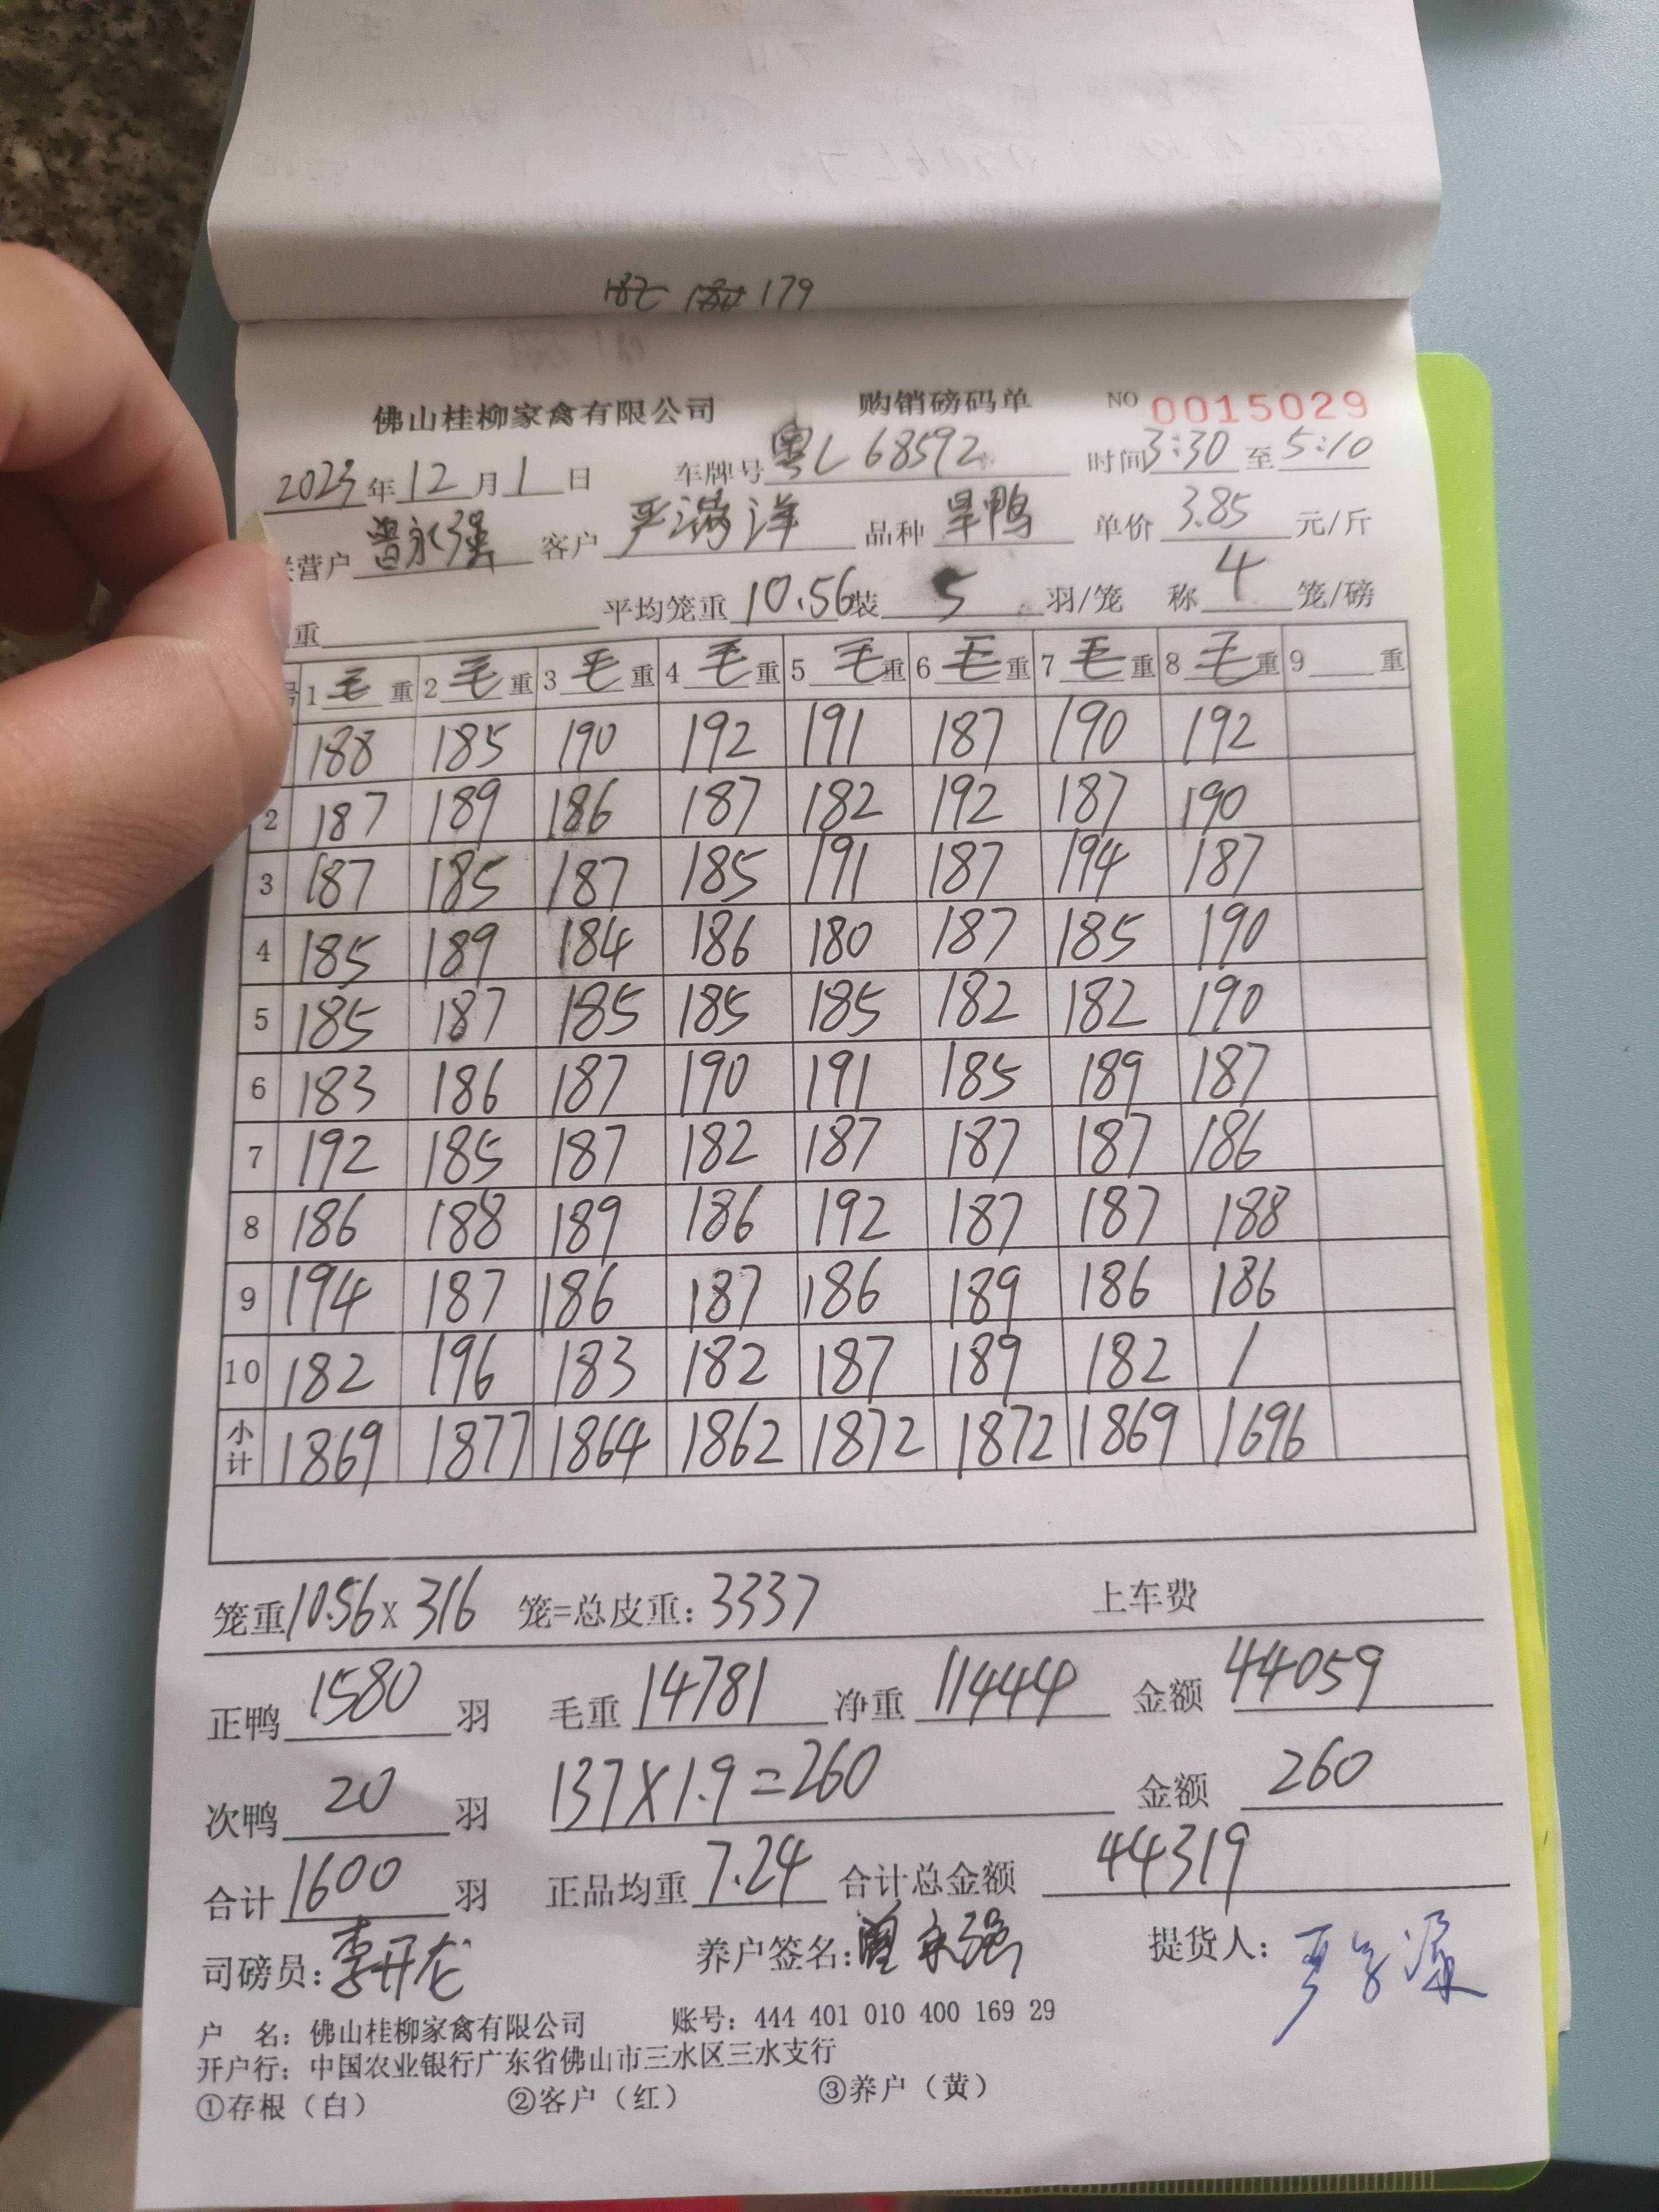 179
佛山桂柳家禽有限公司 购销磅码单 NO 0015029
2023年12月1日 车牌号粤L68592 时间3:30至5:10
营户曾永强 客户严满洋 品种旱鸭 单价3.85元/斤
重 平均笼重10.56装5羽/笼 称4笼/磅
号 1毛重 2毛重 3毛重 4毛重 5毛重 6毛重 7毛重 8毛重 9 重
188 185 190 192 191 187 190 192
2 187 189 186 187 182 192 187 190
3 187 185 187 185 191 187 194 187
4 185 189 184 186 180 187 185 190
5 185 187 185 185 185 182 182 190
6 183 186 187 190 191 185 189 187
7 192 185 187 182 187 187 187 186
8 186 188 189 186 192 187 187 188
9 194 187 186 187 186 189 186 186
10 182 196 183 182 187 189 182 /
小计 1869 1877 1864 1862 1872 1872 1869 1696
笼重10.56X316 笼=总皮重:3337 上车费
正鸭1580羽 毛重14781 净重11444 金额44059
次鸭20羽 137X1.9=260 金额260
合计1600羽 正品均重7.24 合计总金额44319
司磅员:李开龙 养户签名:曾永强 提货人:
户 名:佛山桂柳家禽有限公司 账号:444 401 010 400 169 29
开户行:中国农业银行广东省佛山市三水区三水支行
①存根(白) ②客户(红) ③养户(黄)